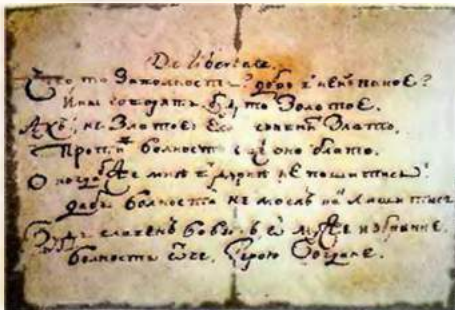 De libertate.
Что то за волность? Добро в ней какое?
Ины говорять, будто золотое.
Ахъ, не златое: если сравнить злато,
Против волности еще оно блато.
О когда бы же мне в дурни не пошитись,
Дабы волности не могль как лишитись.
Будь славень вовек, о муже избранне,
Волности отче, Герою Богдане.